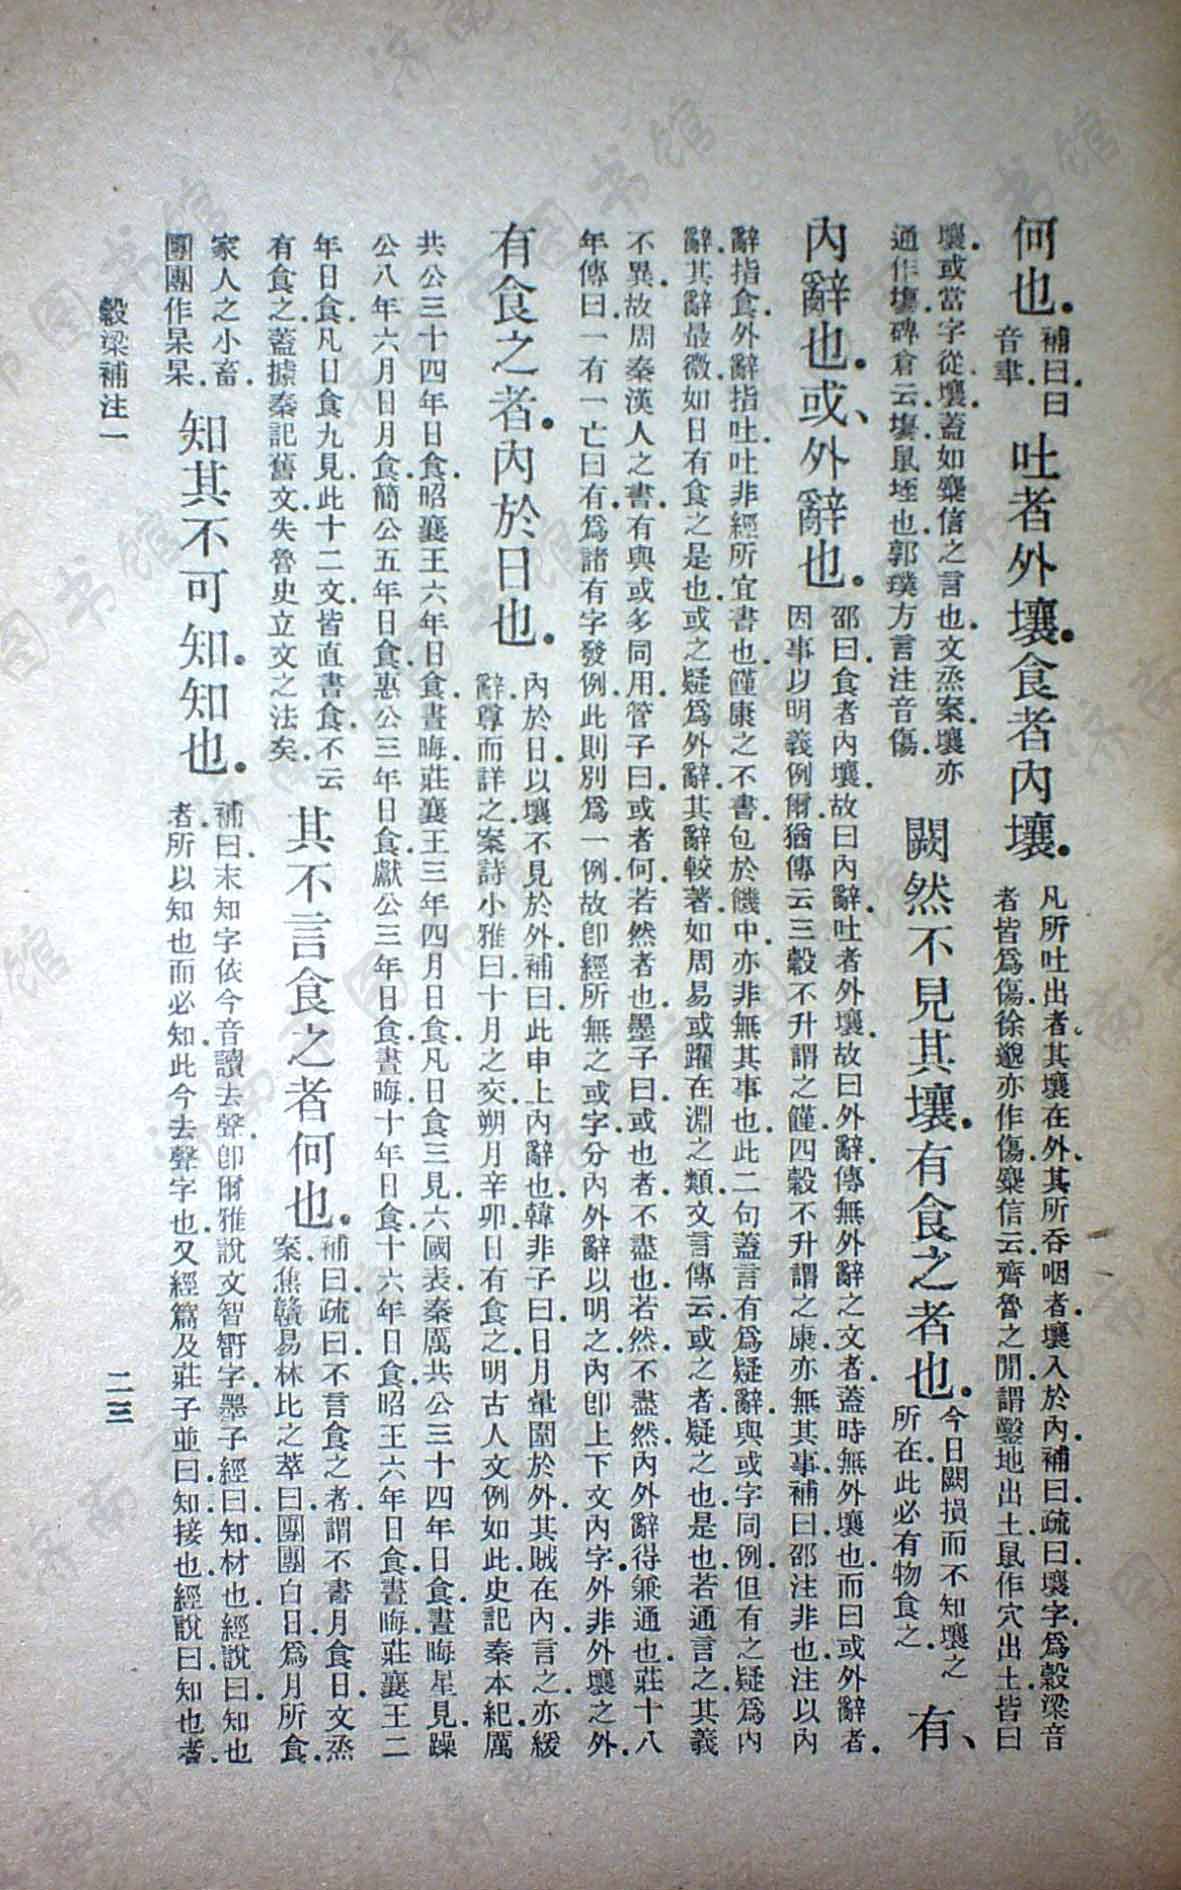 何也．補曰．曰音聿．吐者外壤．食者內壤．凡所吐出者．其壤在外．其所吞咽者．壤入於內．補曰．疏曰．壤字．爲穀梁音者皆爲傷．徐邈亦作傷．麋信云．齊魯之間．謂鑿地出土．鼠作穴出土．皆曰
壤．或當字從壤．蓋如麋信之言也．文烝案．壤亦通作塲．碑倉云．塲．鼠垤也．郭璞方言注音傷．闕然不見其壤．有食之者也．今日闕損而不知壤之所在．此必有物食之．有、
內辭也．或、外辭也．邵曰．食者內壤．故曰內辭．吐者外壤．故曰外辭．傳無外辭之文者．蓋時無外壤也．而曰或外辭者．因事以明義例爾．猶傳云三穀不升謂之饉．四穀不升謂之康．亦無其事．補曰．邵注非也．注以內
辭指食．外辭指吐．吐非經所宜書也．饉康之不書．包於饑中．亦非無其事也．此二句蓋言有爲疑辭．與或字同例．但有之疑爲內
辭．其辭最微．如日有食之是也．或之疑爲外辭．其辭較著．如周易或躍在淵之類．文言傳云．或之者．疑之也．是也．若通言之．其義
不異．故周秦漢人之書．有與或多同用．管子曰．或者何．若然者也．墨子曰．或也者．不盡也．若然．不盡然．內外辭得兼通也．莊十八
年傳曰．一有一亡曰有．爲諸有字發例．此則別爲一例．故卽經所無之或字．分內外辭以明之．內卽上下文內字．外非外壤之外．
有食之者．內於日也．內於日．以壤不見於外．補曰．此申上內辭也．韓非子曰．日月暈圍於外．其賊在內．言之亦緩辭．尊而詳之．案詩小雅曰．十月之交．朔月辛卯．日有食之．明古人文例如此．史記秦本紀．厲
共公三十四年日食．昭襄王六年日食．晝晦．莊襄王三年四月日食．凡日食三見．六國表．秦厲共公三十四年日食．晝晦星見．躁
公八年六月日月食．簡公五年日食．惠公三年日食．獻公三年日食．晝晦．十年日食．十六年日食．昭王六年日食．晝晦．莊襄王二
年日食．凡日食九見．此十二文．皆直書食．不云有食之．蓋據秦記舊文．失魯史立文之法矣．其不言食之者何也．補曰．疏曰．不言食之者．謂不書月食日．文烝案．焦贛易林比之萃曰．團團白日．爲月所食．
家人之小畜．團團作杲杲．知其不可知．知也．補曰．末知字依今音讀去聲．卽爾雅說文智𥏼字．墨子經曰．知．材也．經說曰．知也者．所以知也．而必知．此今去聲字也．又經篇及莊子並曰．知．接也．經說曰．知也者．
穀梁補注一
二三